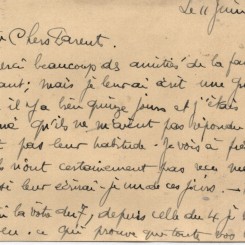 Le 11 Juin
Chers Parents.
merci beaucoup des amitiés de la fa
ant; mais je leur ai écrit une gr
il y a bien quinze jours et j'étais
né qu'ils ne m'aient pas répondu
t pas leur habitude. je vois à pré
ls n'ont certainement pas reçu m
si leur écrirai-je un de ces jours. —
la vôtre du 7, depuis celle du 4 je l
en. ce qui prouve que toute vos